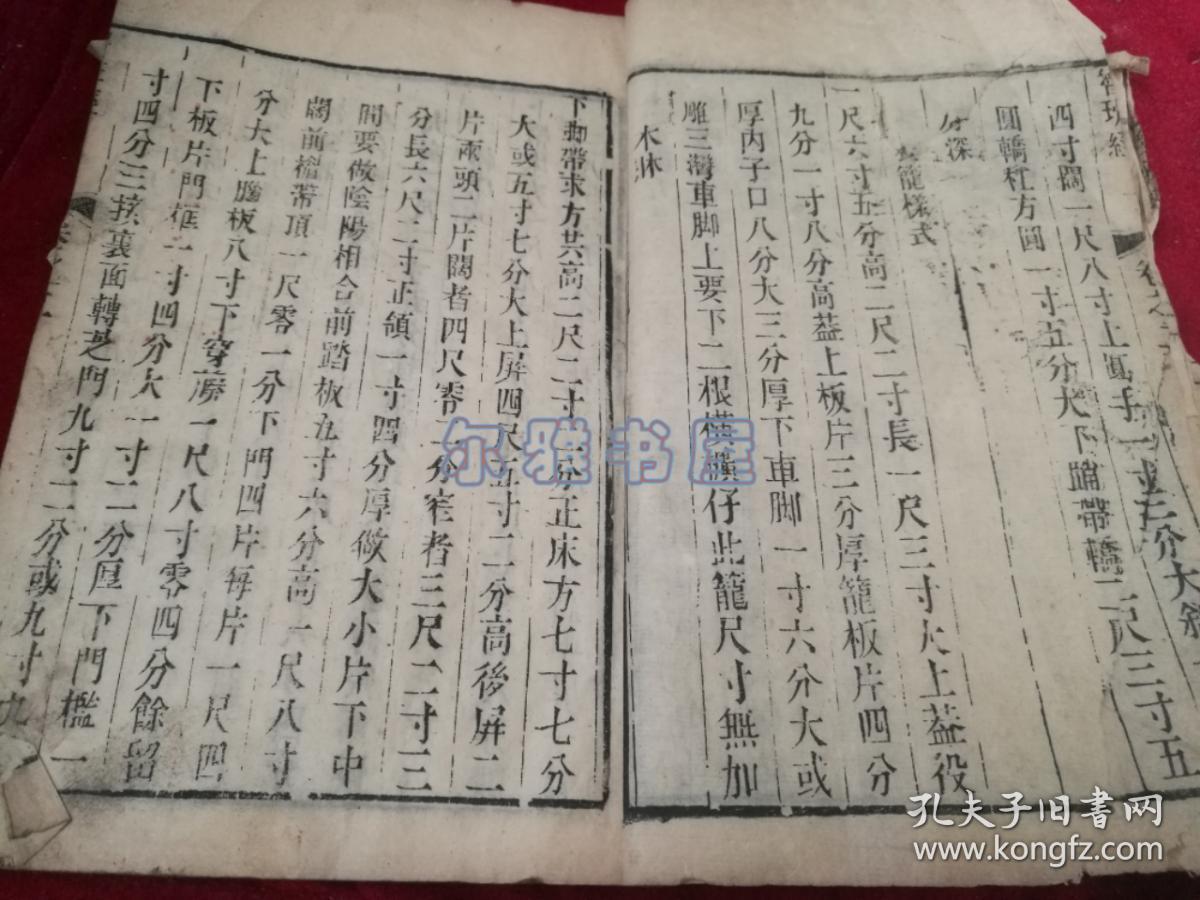 四寸闊一尺八寸上圓手一寸三分大斜
圓轎杠方圓一寸五分大下踊帶轎二尺三寸五
分深
衣籠樣式
一尺六寸五分高二尺二寸長一尺三寸大上蓋役
九分一寸八分高蓋上板片三分厚籠板片四分
厚內子口八分大三分厚下車脚一寸六分大或
雕三灣車脚上要下二根橫擴仔此籠尺寸無加
大床
下脚帶床方共高二尺二寸二分正床方七寸七分
大或五寸七分大上屏四尺五寸二分高後屏二
片兩頭二片闊者四尺零二分窄者三尺二寸三
分長六尺二寸正領一寸四分厚做大小片下中
間要做陰陽相合前踏板五寸六分高一尺八寸
闊前楹帶頂一尺零一分下門四片每片一尺四
分大上腦板八寸下穿藤一尺八寸零四分餘留
下板片門框一寸四分大一寸二分厚下門檻一
寸四分三接裏面轉芝門九寸二分或九寸九
尔雅书屋
孔夫子旧书网
www.kongfz.com